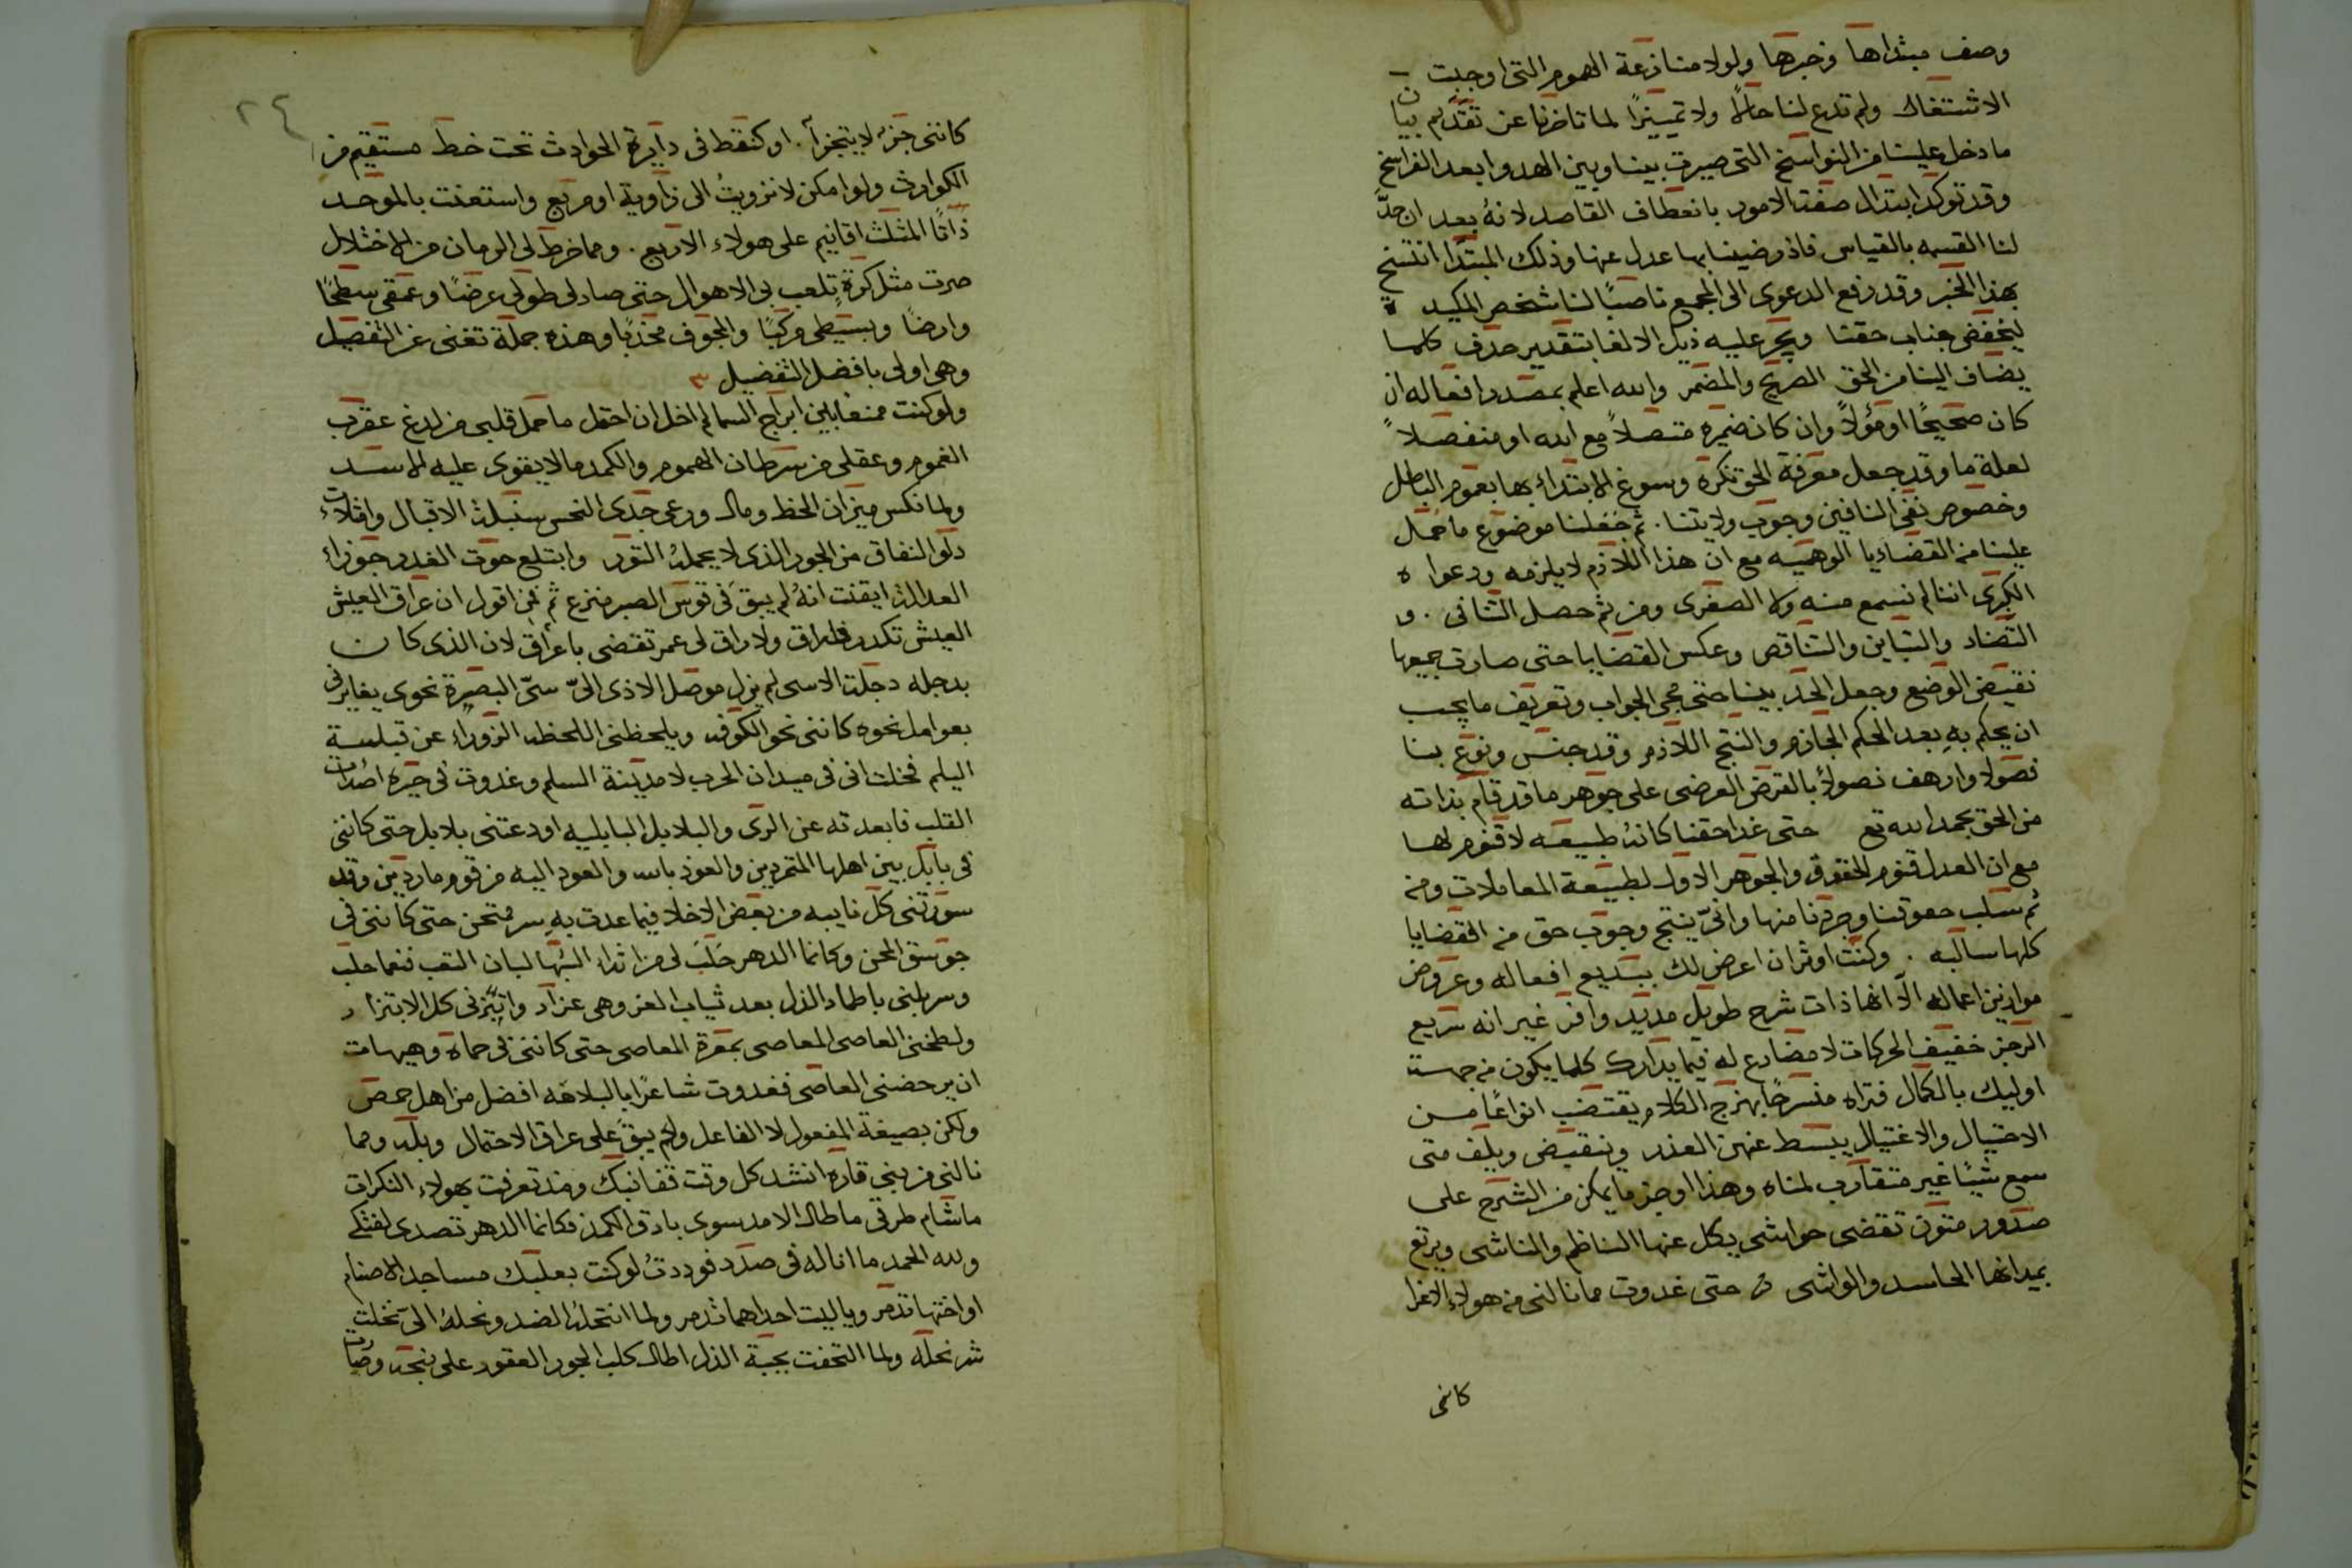 وصف مبتداها وخبرها ولولا منازعة الهموم التى اوجبت
الاشتغال ولم تدع لنا حالاً ولا تمييزًا لما تاخرنا عن تقديم بيان
ما دخل علينا من النواسخ التى صيرت بيننا وبين الهدو ابعد الفراسخ
وقد توكد ابتدال صفتا الامور بانعطاف القاصد لانهُ بعد ان جدَّ
لنا القسمه بالقياس فاذ رضينا بها عدل عنها وذلك المبتدا انتسخ
بهذا الخبر وقد رفع الدعوى الى المجمع ناصبًا لنا شخص المكيد ه
ليخفض جناب حقنا ويجر عليه ذيل الالغا بتقدير حذف كلما
يضاف الينا من الحق الصريح والمضمر والله اعلم بمصدر افعاله ان
كان صحيحًا او مؤولاً وان كان ضميره متصلاً مع الله او منفصلاً
لعلة ما وقد جعل معرفة الحق نكرة وسوغ الابتداء بها بعموم الباطل
وخصوص نفى النافين وجوب ولايتنا . ثم جعلنا موضوع ما حمل
علينا من القضايا الوهميه مع ان هذا اللازم لا يلزمه ودعوا ه
الكبرى اننا لم نسمع منه ولا الصغرى ومن ثم حصل التنافى . و
التضاد والتباين والتناقص وعكس القضايا حتى صارت جميعها
نقيض الوضع وجعل الحد بيننا حتى محى الجواب وتعريف ما يجب
ان يحكم بهِ بعد الحكم الجازم والنتج اللازم وقد جنس ونوع بنا
فصولا وارهف نصولاً بالفرض العرضى على جوهر ما قد قام بذاته
من الحق بحمد الله تع حتى غدا حقنا كانهُ طبيعه لا قنوم لها
مع ان العدل قنوم الحقوق والجوهر الاول لطبيعة المعاملات ومن
ثم سلب حقوقنا وجردنا منها وانّى ينتج وجوب حق من القضايا
كلها سالبه . وكنت اوثر ان اعرض لك بسديع افعاله وعروض
موازين اعماله الّا انها ذات شرح طويل مديد وافر غير انه سريع
الرجز خفيف الحركات لا مضارع له فيما يدارك كلما يكون من جهست
اوليك بالكمال فتراه منسرحًا بهزج الكلام يقتضب انواعًا من
الاحتيال والاغتيال يبسط عنهن العذر وينقبض ويلف متى
سمع شيئًا غير متقارب لمناه وهذا اوجز ما يمكن من الشرح على
صدور متون تقضى حواشى يكل عنها الناظم والناشى ويرتع
بميدانها الحاسد والواشى حتى غدوت مما نالنى من هولاء الاغرا
كاننى
٢٤
كاننى جزء لا يتجزأ . او كنقط فى دايرة الحوادث تحت خط مستقيم من
الكوارث ولو امكن لانزويتُ الى زاوية او مربع واستعنت بالموحد
ذاتًا المثلث اقانيم على هولاء الاربع . ومما خرط لى الزمان من الاختلال
صرت مثل كرة تلعب بى الاهوال حتى صار لى طولى عرضًا وعمقى سطحًا
وارضًا وبسيطى مركبًا والمجوف محدبًا وهذه جملة تغنى عن التفصيل
وهى اولى بافضل التفضيل
ولو كنت ممنعًا بين ابراج السما لم اخل ان احتمل ما حمل قلبى من لدغ عقرب
الغموم وعقلى من سرطان الهموم والكمد ما لا يقوى عليه الاسد
ولما نكس ميزان الحظ ومال ورعى جدى النحس سنبلة الاقبال وافلات
دلو النفاق من الجور الذى لا يحمله الثور وابتلع حوت الغدر جوزاء
العدالة ايقنت انهُ لم يبقَ فى قوس الصبر منزع ثم فمن اقول ان عراق العيش
العيش تكدر فلا راق ولا راق لى عمر تقضى باعراق لان الذى كان
بدجله دجلة الاسى لم يزل موصل الاذى الىّ سئ البصرة نحوى يغايرنى
بعوامل نحوه كاننى نحو الكوفه ويلحظنى اللحظه الزوراء عن تبلسة
اليلم فخلت انى فى ميدان الحرب لا مدينة السلم وغدوت فى حيرة اصدات
القلب فابعدته عن الرى والبلابل البابليه اودعتنى بلابل حتى كاننى
فى بابل بين اهلها المتمردين والعوذ بالله والعود اليه من قوم ماردين وقد
سورتنى كل نايبه من بعض الاخلا فيما عدت بهِ سر ممتحن حتى كاننى فى
جوسق المحن وكانما الدهر حلب لى من اثداء الشهبا لبان التعب فنعما حلب
وسربلنى باطمار الذل بعد ثياب العز وهى عزاز وابتزنى كل الابتزا ز
ولطخنى العاصى المعاصى بمعرة المعاصى حتى كاننى فى حماة وهيهات
ان يرحضنى العاصى فغدوت شاعرًا بالبلاهة افضل من اهل حمص
ولكن بصيغة المفعول لا الفاعل ولم يبق على عراقى الاحتمال وبله ومما
نالنى من بنى قاره انشد كل وقت قفا نبك ومذ تعرفت بهولاء النكرات
ما شام طرفى ما طال الامد سوى بارق الكمد فكانما الدهر تصدى لفتكى
ولله الحمد ما انا له فى صدد فوددتُ لو كنت بعلبك مساجد الاصنام
او اختها تدمر ويا ليت احداهما تدمر ولما انتحلهُ الضد ونحلهُ الىّ تخلت
شر نحلة ولما التحفت بجبة الذل اطال كلب الجور العقور على نبحه وصات